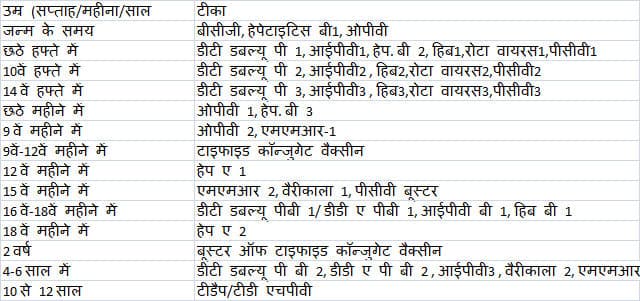 उम्र (सप्ताह/महीना/साल टीका
जन्म के समय बीसीजी, हेपेटाइटिस बी1, ओपीवी
छठे हफ्ते में डीटी डबल्यू पी 1, आईपीवी1, हेप. बी 2, हिब1,रोटा वायरस1,पीसीवी1
10वें हफ्ते में डीटी डबल्यू पी 2, आईपीवी2 , हिब2,रोटा वायरस2,पीसीवी2
14 वें हफ्ते में डीटी डबल्यू पी 3, आईपीवी3 , हिब3,रोटा वायरस3,पीसीवी3
छठे महीने में ओपीवी 1, हेप. बी 3
9 वें महीने में ओपीवी 2, एमएमआर-1
9वें-12वें महीने में टाइफाइड कॉन्जुगेट वैक्सीन
12 वें महीने में हेप ए 1
15 वें महीने में एमएमआर 2, वैरीकाला 1, पीसीवी बूस्टर
16 वें-18वें महीने में डीटी डबल्यू पीबी 1/ डीडी ए पीबी 1, आईपीवी बी 1, हिब बी 1
18 वें महीने में हेप ए 2
2 वर्ष बूस्टर ऑफ टाइफाइड कॉन्जुगेट वैक्सीन
4-6 साल में डीटी डबल्यू पी बी 2, डीडी ए पी बी 2 , आईपीवी3 , वैरीकाला 2, एमएमआर
10 से 12 साल टीडैप/टीडी एचपीवी